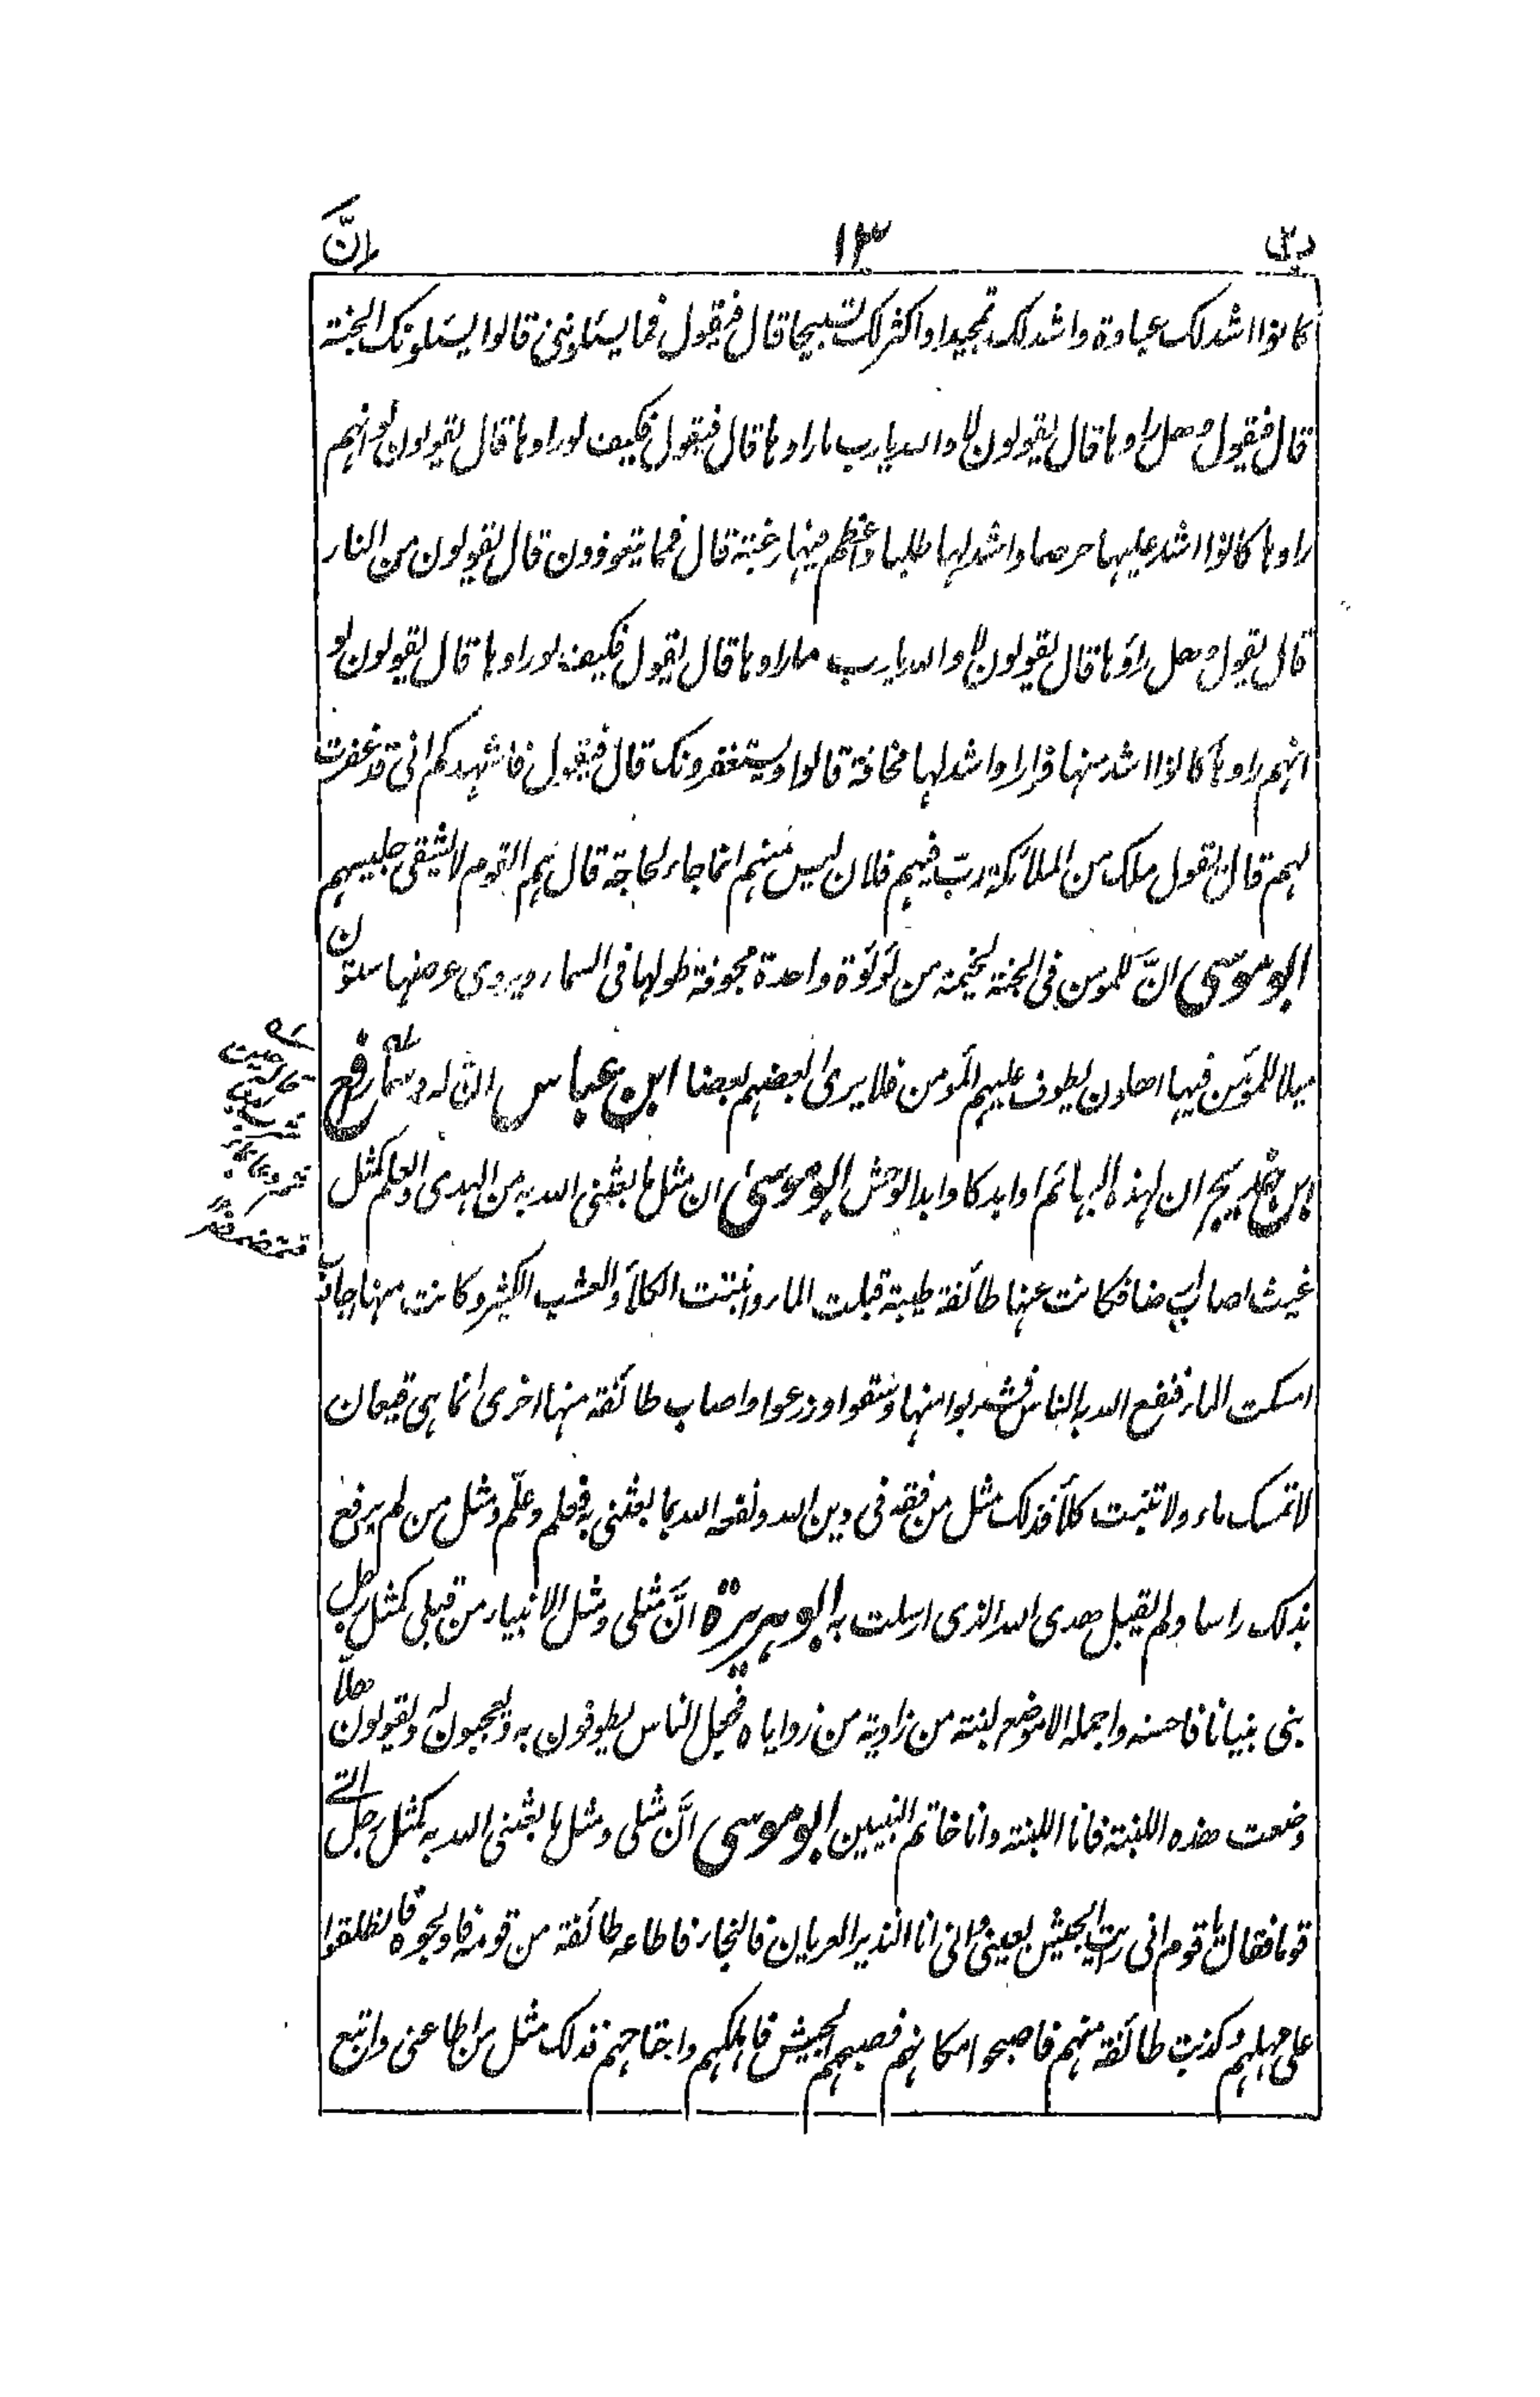 اِنَّ
۱۳
کانوا اشد لک عبادة واشد لک تمجیدا واکثر لک تسبیحا قال فیقول فما یسئلونی قالوا یسئلونک الجنة
قال فیقول وهل راوها قال یقولون لا والله یارب ماراوها قال فیقول فکیف لوراوها قال یقولون لو انهم
راوها کانوا اشد علیها حرصا واشد لها طلبا واعظم فیها رغبة قال فمما یتعوذون قال یقولون من النار
قال یقول وهل راوها قال یقولون لا والله یارب ماراوها قال یقول فکیف لوراوها قال یقولون لو
انهم راوها کانوا اشد منها فرارا واشد لها مخافة قالوا ویستغفرونک قال فیقول فاشهدکم انی قد غفرت
لهم قال یقول ملک من الملائکة رب فیهم فلان لیس منهم انما جاء لحاجة قال هم القوم لا یشقی جلیسهم
ابوموسی انَّ للمومن فی الجنة لخیمة من لؤلؤة واحدة مجوفة طولها فی السماء ویروی عرضها ستون
میلا للمؤمن فیها اهلون یطوف علیهم المؤمن فلا یری بعضهم بعضا ابن عباس انَّ له دسما رافع
بن خدیج ان لهذه البهائم اوابد کاوابد الوحش ابوموسی ان مثل ما بعثنی الله به من الهدی والعلم کمثل
غیث اصاب ارضا فکانت عنها طائفة طیبة قبلت الماء وانبتت الکلأ والعشب الکثیر وکانت منها اجادب
امسکت الماء فنفع الله بها الناس فشربوا منها وسقوا وزرعوا واصاب طائفة منها اخری انما هی قیعان
لا تمسک ماء ولا تنبت کلأ فذلک مثل من فقه فی دین الله ونفعه الله بما بعثنی به فعلم وعلّم ومثل من لم یرفع
بذلک راسا ولم یقبل هدی الله الذی ارسلت به ابوهریرة انَّ مثلی ومثل الانبیاء من قبلی کمثل رجل
بنی بنیانا فاحسنه واجمله الا موضع لبنة من زاویة من زوایاه فجعل الناس یطوفون به ویعجبون له ویقولون هلّا
وضعت هذه اللبنة فانا اللبنة وانا خاتم النبیین ابوموسی انَّ مثلی ومثل ما بعثنی الله به کمثل رجل اتی
قوما فقال یا قوم انی رایت الجیش بعینی وانی انا النذیر العریان فالنجاء فاطاعه طائفة من قومه فادلجوا فانطلقوا
علی مهلهم وکذبت طائفة منهم فاصبحوا مکانهم فصبحهم الجیش فاهلکهم واجتاحهم فذلک مثل من اطاعنی واتبع